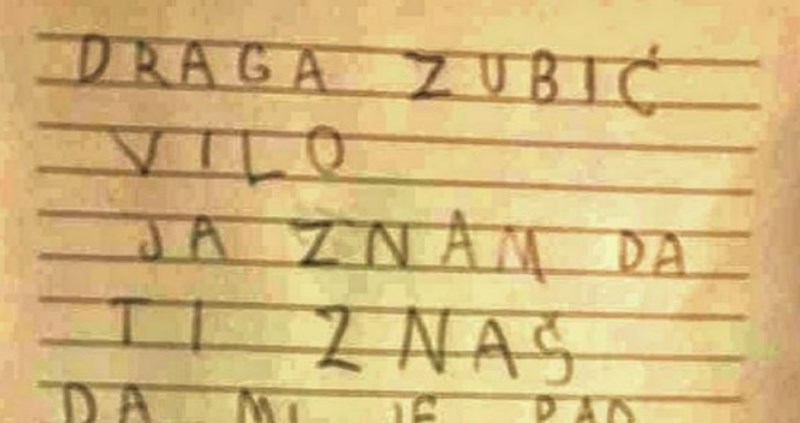 DRAGA ZUBIĆ
VILO
JA ZNAM DA
TI ZNAŠ
DA MI JE PAO